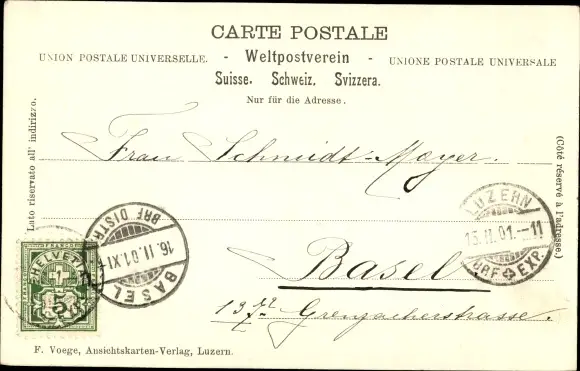 CARTE POSTALE
UNION POSTALE UNIVERSELLE. - Weltpostverein - UNIONE POSTALE UNIVERSALE
Suisse. Schweiz. Svizzera.
Nur für die Adresse.
Lato riservato all' indirizzo.
(Côté réservé à l'adresse.)
Frau Schmidt-Mayer.
LUZERN
15.II.01.-11
BRF EXP.
BASEL
16.II.01.XI
BRF DISTR
HELVETIA
5
Basel
Grenzacherstrasse.
F. Voege, Ansichtskarten-Verlag, Luzern.